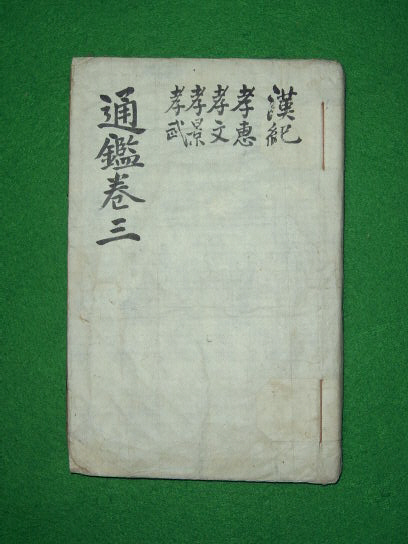 漢紀
孝惠
孝文
孝景
孝武
通鑑卷三